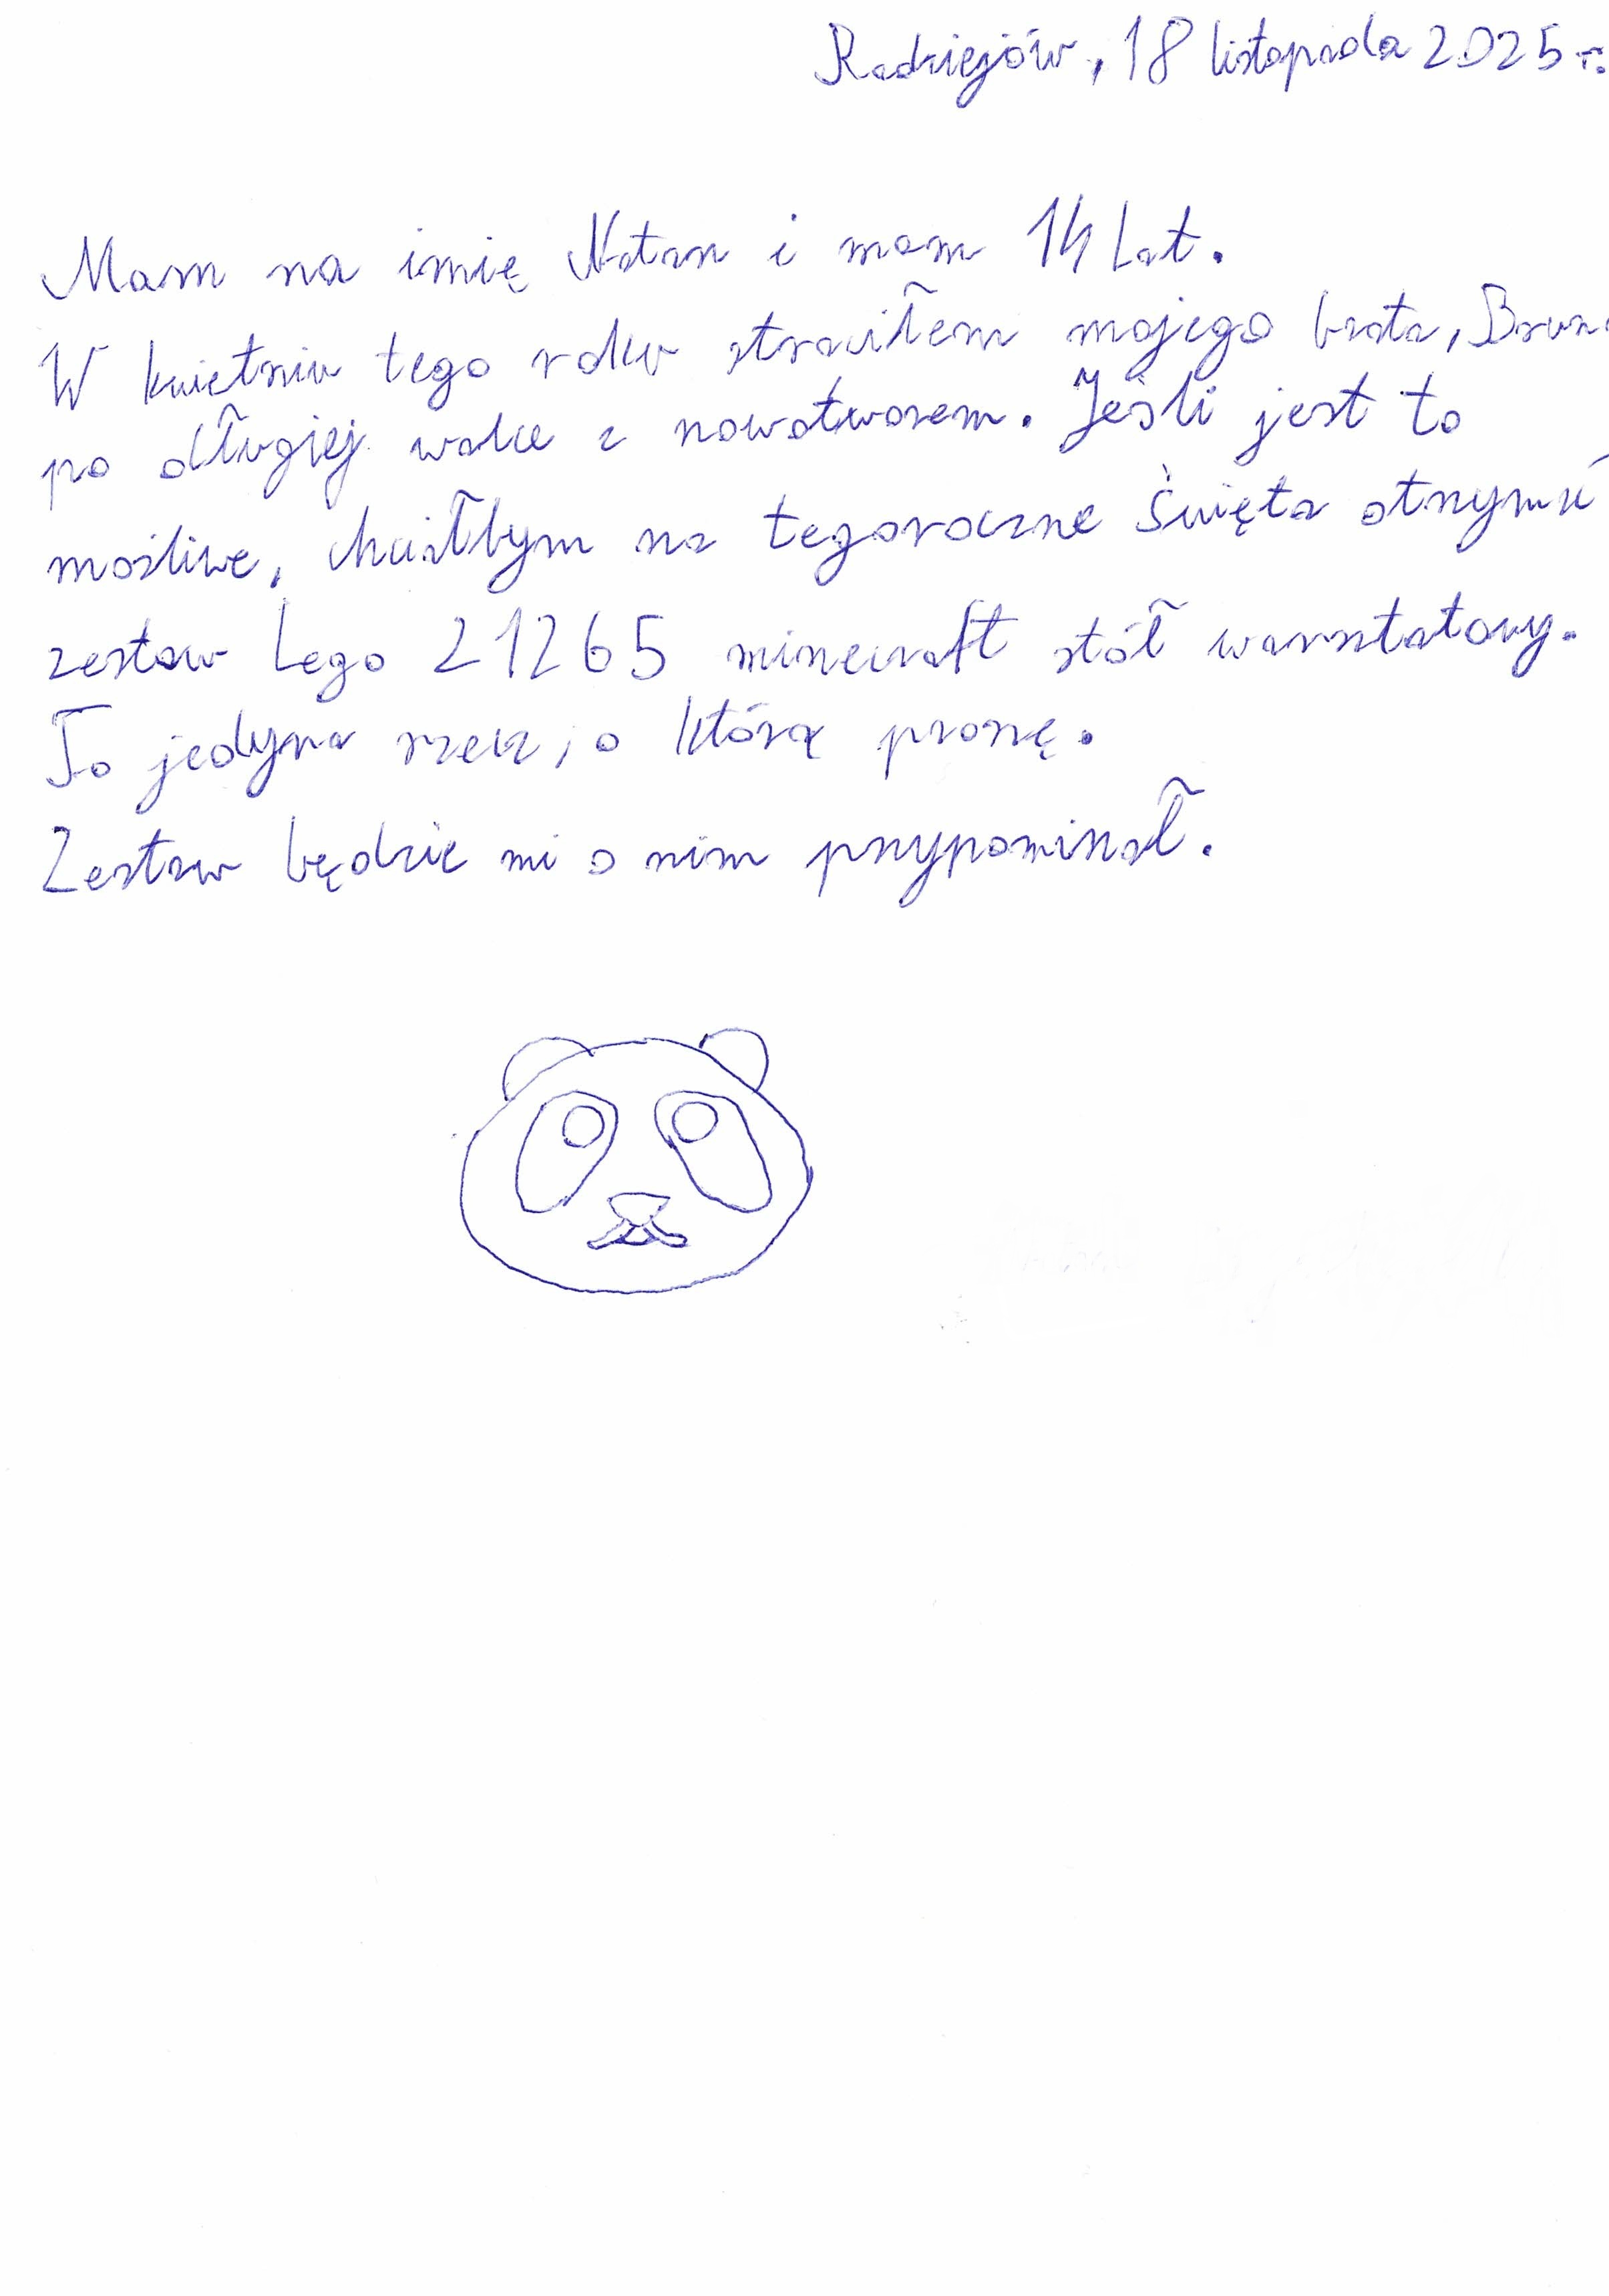 Radziejów, 18 listopada 2025 r.
Mam na imię Natan i mam 14 Lat.
W kwietniu tego roku straciłem mojego brata,
po długiej walce z nowotworem. Jeśli jest to
możliwe, chciałbym na tegoroczne Święta otrzymać
zestaw Lego 21265 minecraft stół warsztatowy.
To jedyna rzecz, o którą proszę.
Zestaw będzie mi o nim przypominał.